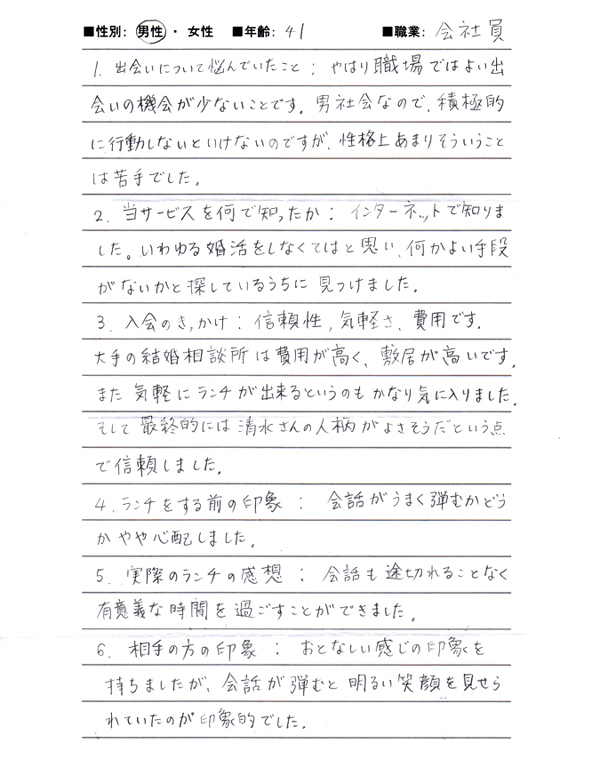 ■性別: 男性 ・ 女性 ■年齢: 41 ■職業: 会社員
1. 出会いについて悩んでいたこと : やはり職場ではよい出
会いの機会が少ないことです。男社会なので、積極的
に行動しないといけないのですが、性格上あまりそういうこと
は苦手でした。
2. 当サービスを何で知ったか : インターネットで知りま
した。いわゆる婚活をしなくてはと思い、何かよい手段
がないかと探しているうちに見つけました。
3. 入会のきっかけ : 信頼性、気軽さ、費用です。
大手の結婚相談所は費用が高く、敷居が高いです。
また気軽にランチが出来るというのもかなり気に入りました。
そして最終的には清水さんの人柄がよさそうだという点
で信頼しました。
4. ランチをする前の印象 : 会話がうまく弾むかどう
かやや心配しました。
5. 実際のランチの感想 : 会話も途切れることなく
有意義な時間を過ごすことができました。
6. 相手の方の印象 : おとなしい感じの印象を
持ちましたが、会話が弾むと明るい笑顔を見せら
れていたのが印象的でした。